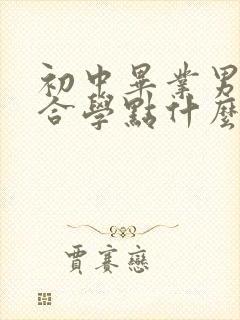 初中畢業男
合學點什麼
賈賽戀